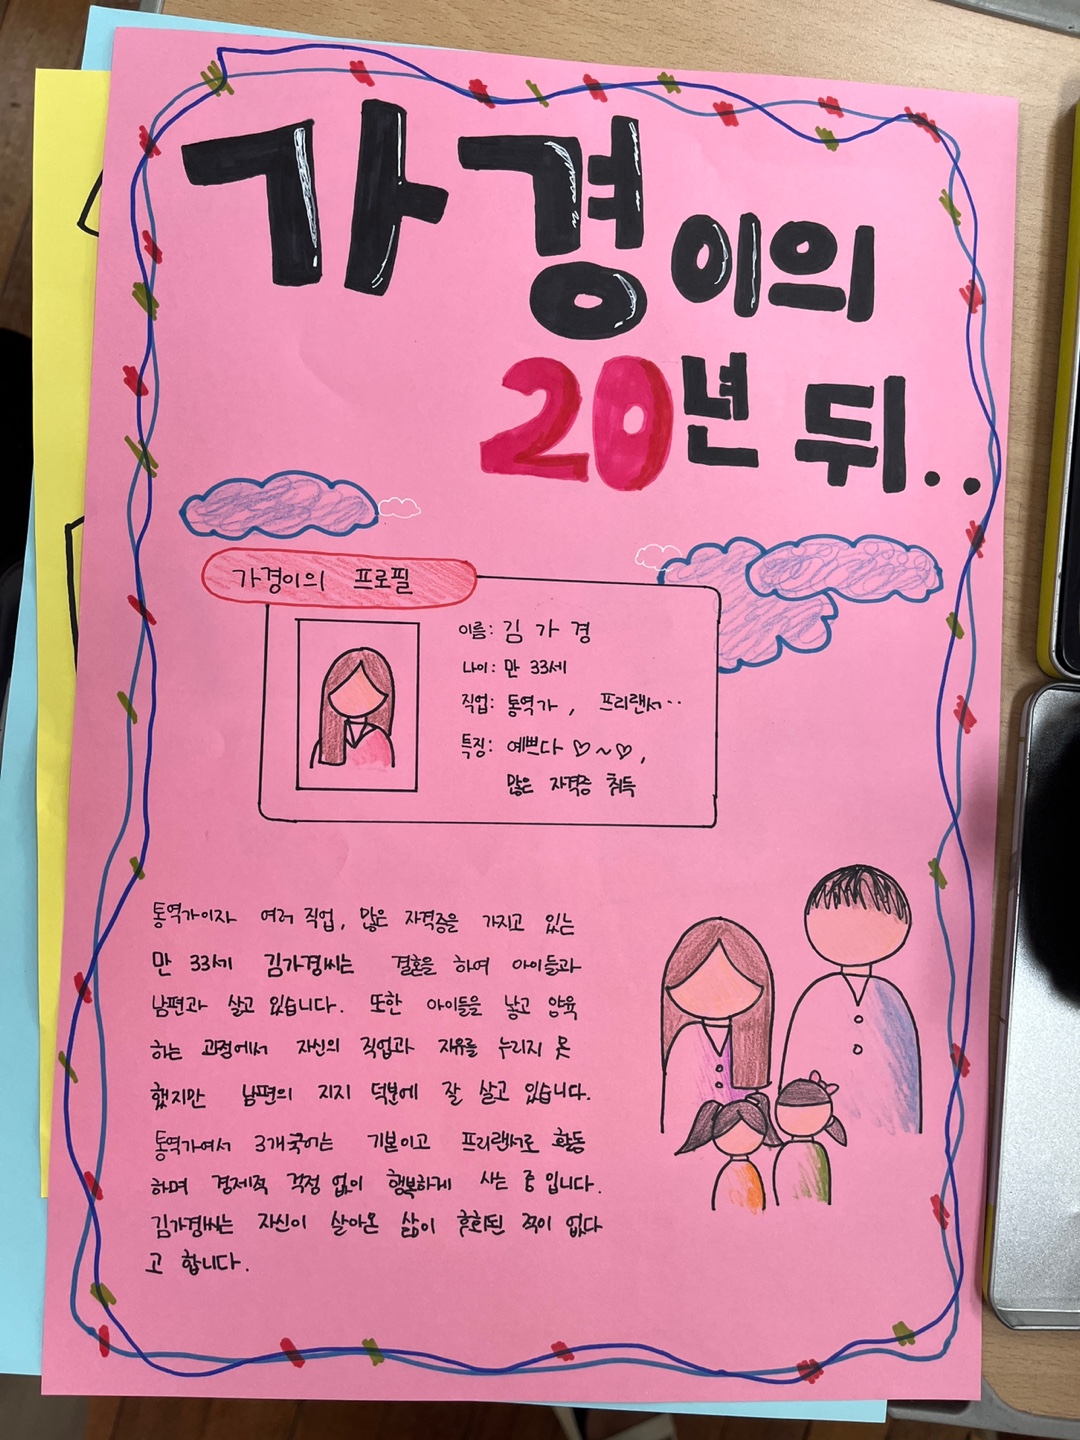 가경이의
20년 뒤..
가경이의 프로필
이름: 김가경
나이: 만 33세
직업: 통역가, 프리랜서..
특징: 예쁘다 ♡~♡,
많은 자격증 취득
통역가이자 여러 직업, 많은 자격증을 가지고 있는
만 33세 김가경씨는 결혼을 하여 아이들과
남편과 살고 있습니다. 또한 아이들을 낳고 양육
하는 과정에서 자신의 직업과 자유를 누리지 못
했지만 남편의 지지 덕분에 잘 살고 있습니다.
통역가여서 3개국어는 기본이고 프리랜서로 활동
하며 경제적 걱정 없이 행복하게 사는 중입니다.
김가경씨는 자신이 살아온 삶이 후회된 적이 없다
고 합니다.